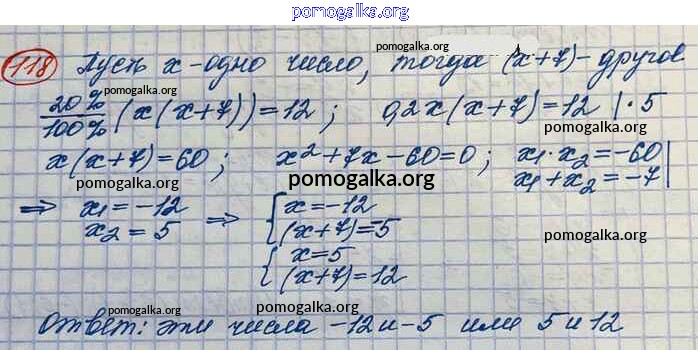 pomogalka.org
118 Пусть x - одно число, тогда (x+7) - другое
pomogalka.org
pomogalka.org
20%/100% (x(x+7))=12; 0,2x(x+7)=12 | · 5
pomogalka.org
x(x+7)=60; x²+7x-60=0; x₁·x₂=-60
x₁+x₂=-7
pomogalka.org
pomogalka.org
=> x₁=-12 => { x=-12
x₂=5 (x+7)=-5
pomogalka.org
pomogalka.org
{ x=5
(x+7)=12
pomogalka.org
pomogalka.org
Ответ: эти числа -12 и -5 или 5 и 12